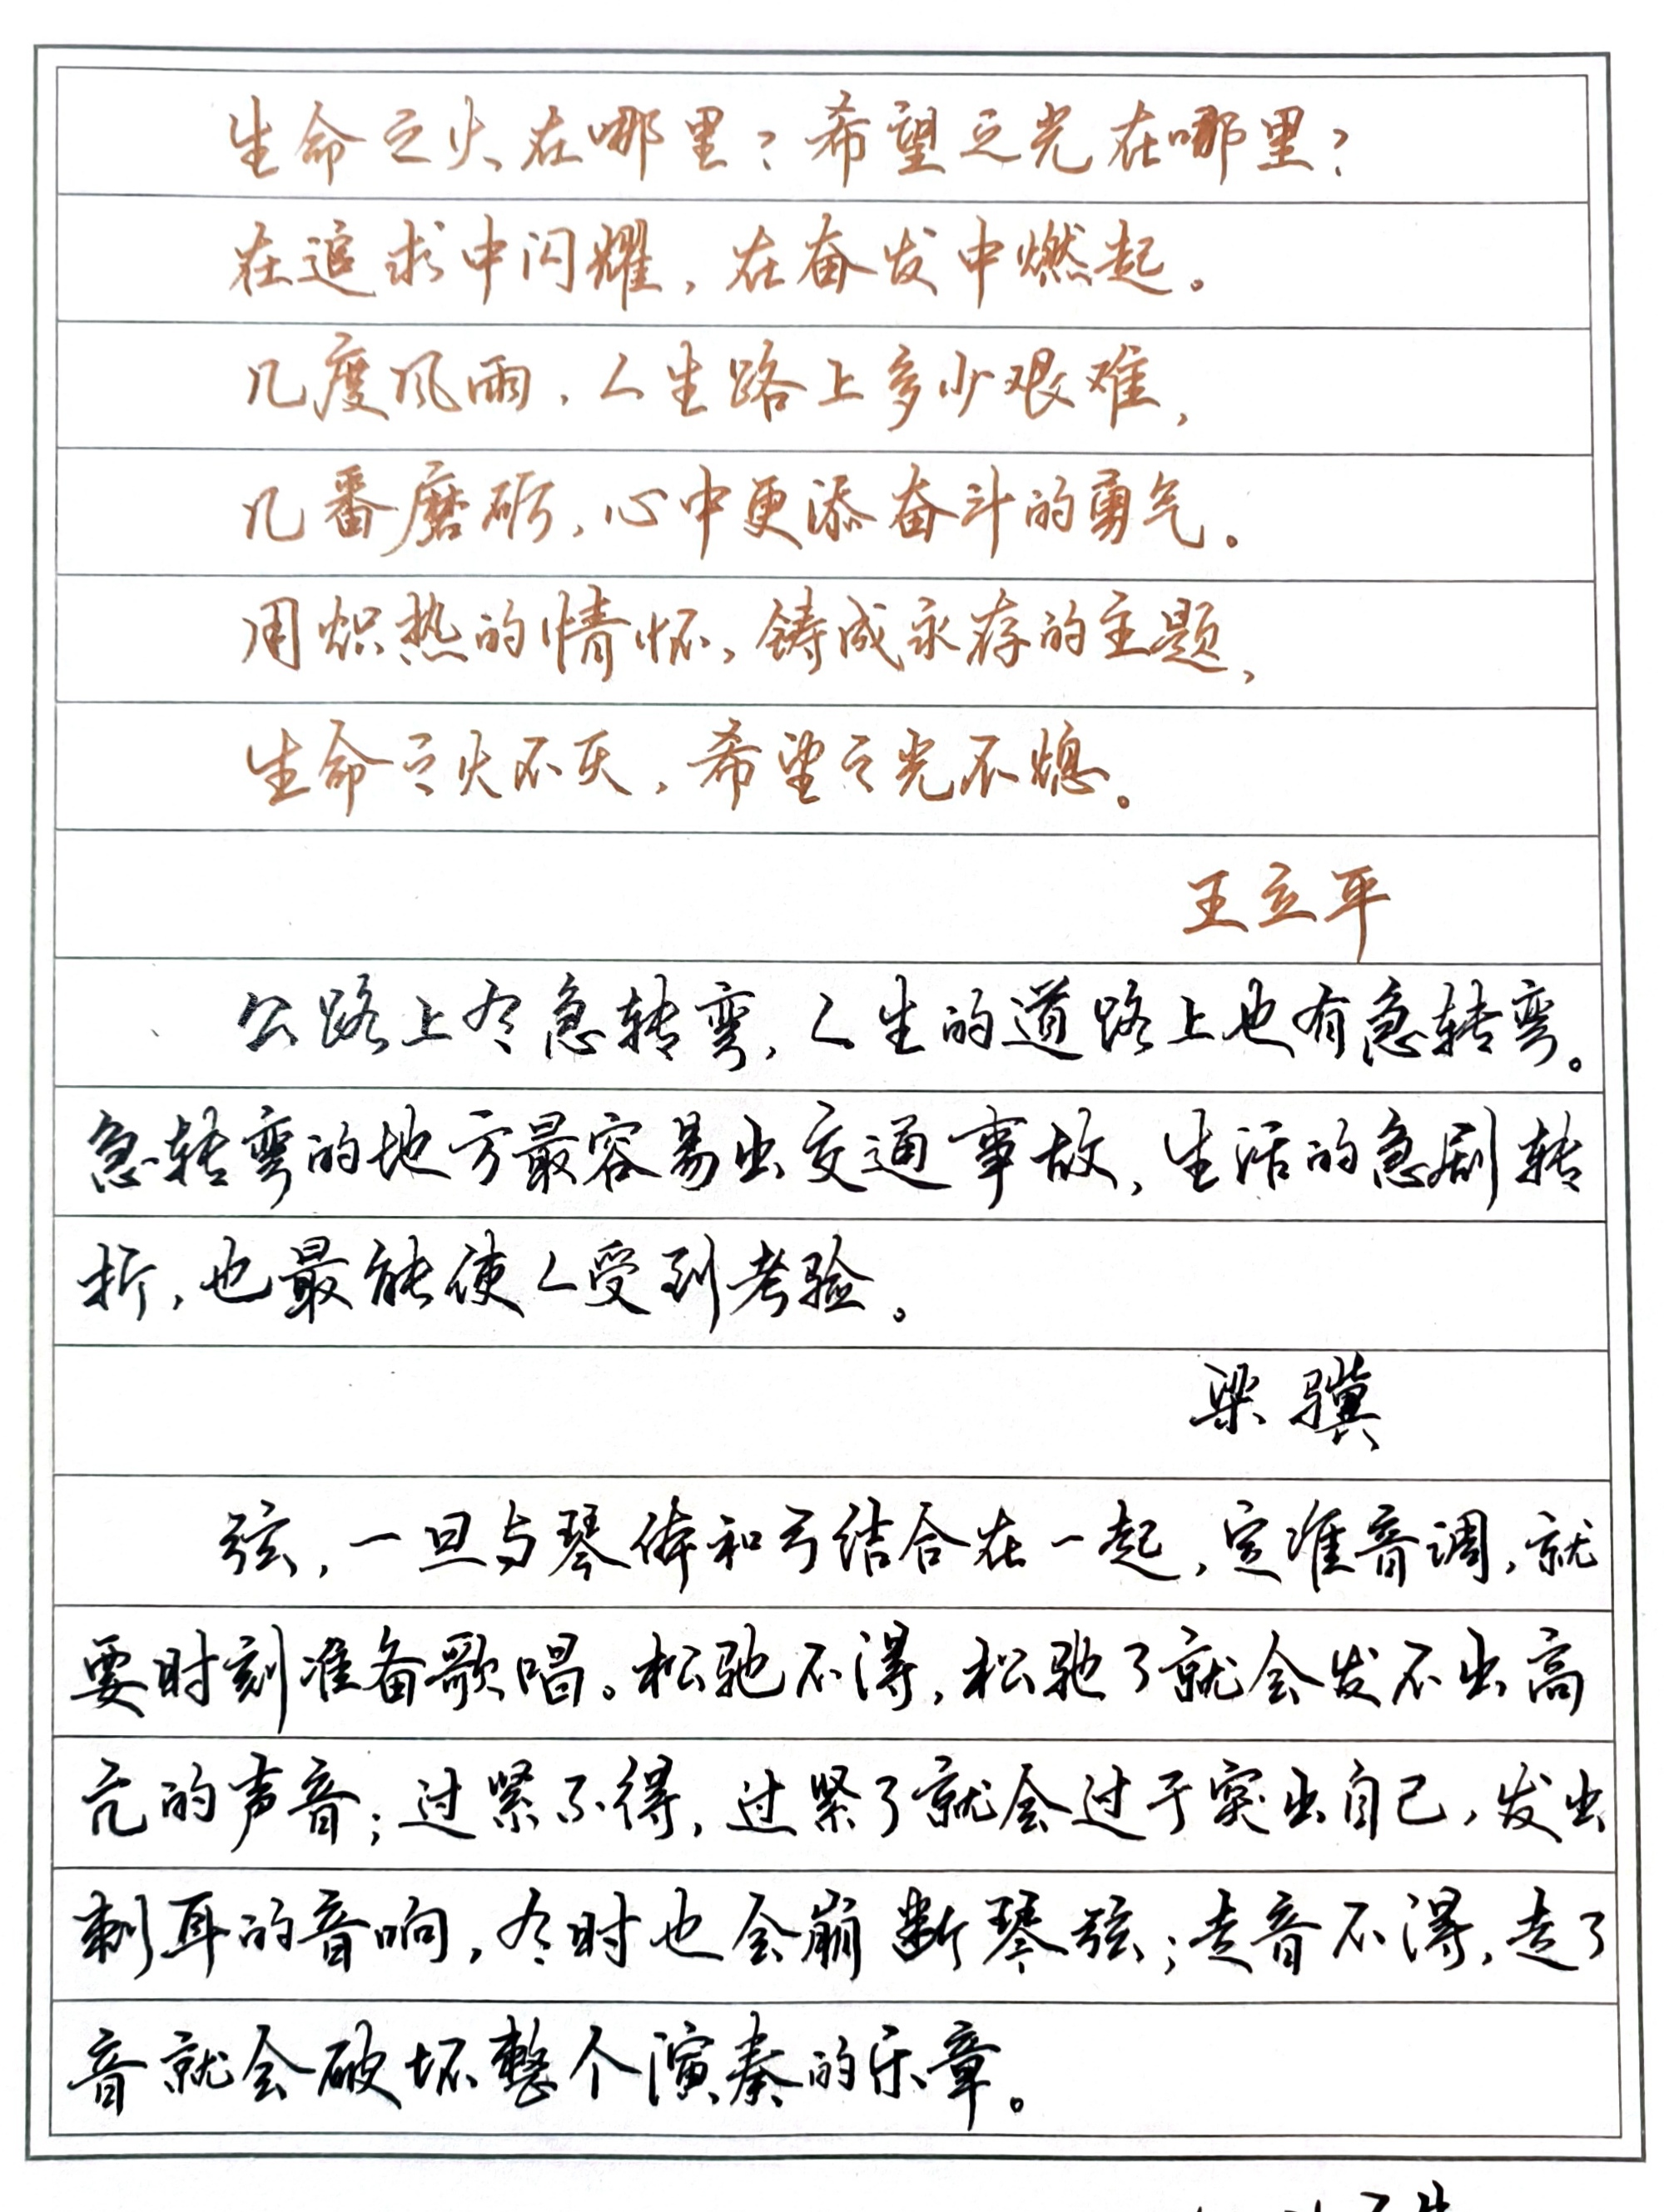 生命之火在哪里？希望之光在哪里？
在追求中闪耀，在奋发中燃起。
几度风雨，人生路上多少艰难，
几番磨砺，心中更添奋斗的勇气。
用炽热的情怀，铸成永存的主题，
生命之火不灭，希望之光不熄。
王立平
公路上有急转弯，人生的道路上也有急转弯。
急转弯的地方最容易出交通事故，生活的急剧转
折，也最能使人受到考验。
梁骥
弦，一旦与琴体和弓结合在一起，定准音调，就
要时刻准备歌唱。松驰不得，松驰了就会发不出高
亢的声音；过紧不得，过紧了就会过于突出自己，发出
刺耳的音响，有时也会崩断琴弦；走音不得，走了
音就会破坏整个演奏的乐章。